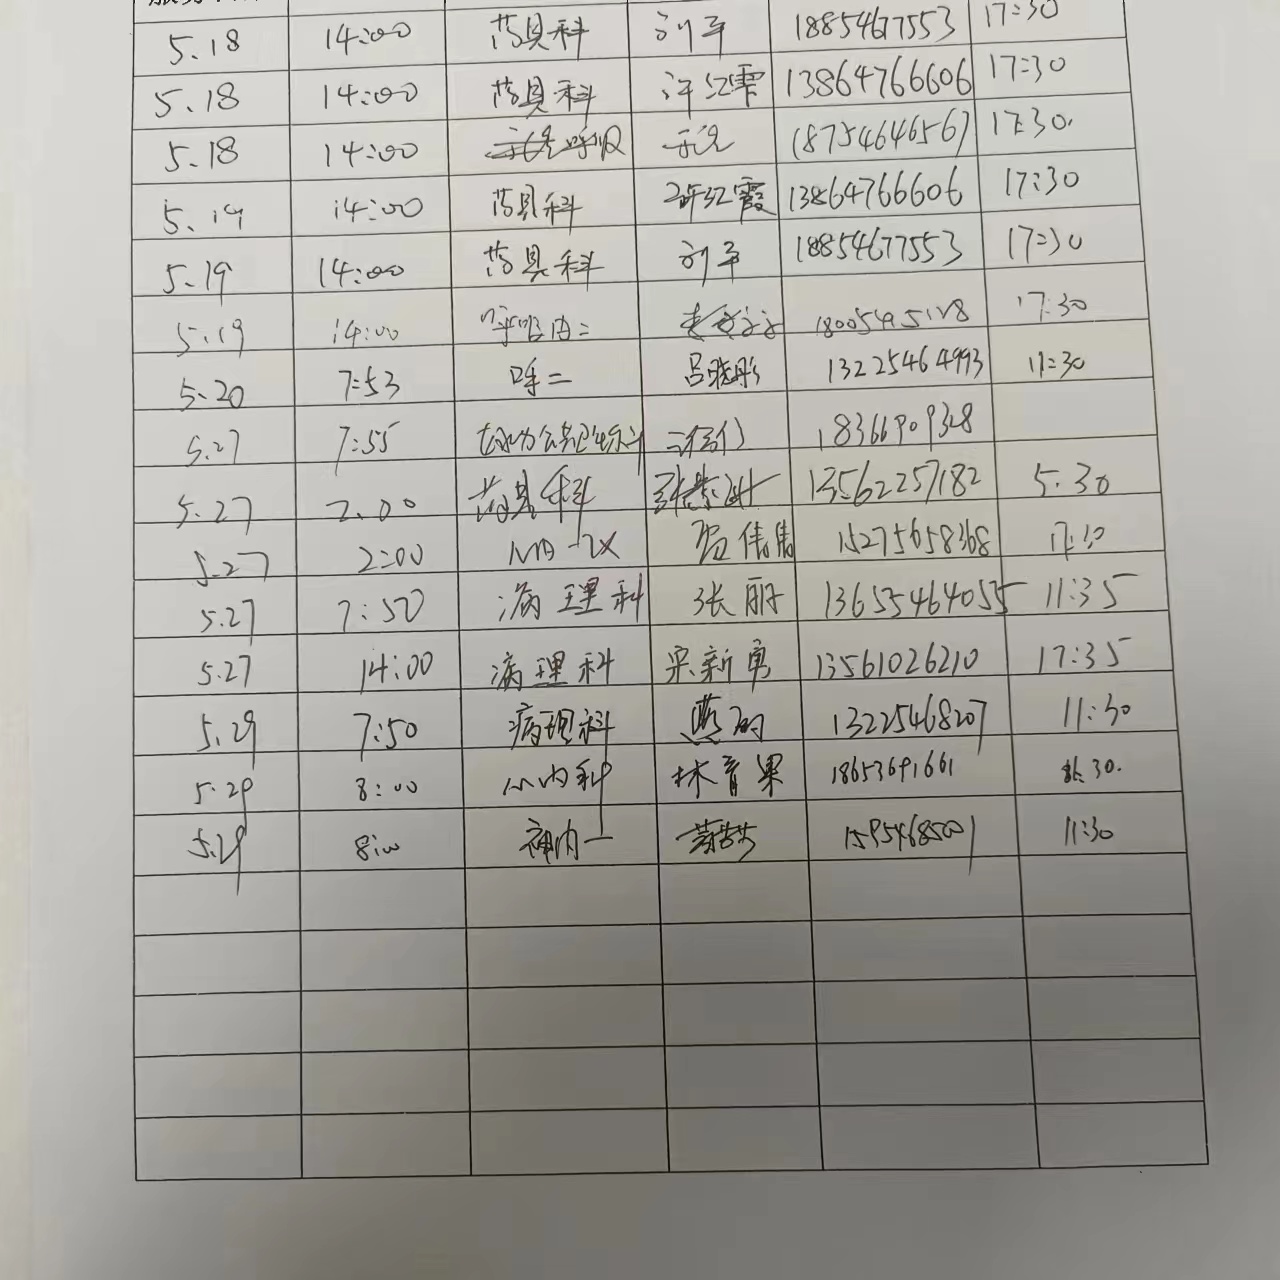 5.18 14:00 药具科 刘平 18854677553 17:30
5.18 14:00 药具科 许红霞 13864766606 17:30
5.18 14:00 呼吸 18754646567 17:30.
5.19 14:00 药具科 许红霞 13864766606 17:30
5.19 14:00 药具科 刘平 18854677553 17:30
5.19 14:00 呼吸内二 18005495128 17:30
5.20 7:53 呼二 吕晓彤 13225464993 11:30
5.27 7:55 18366909328
5.27 2:00 药具科 13562257182 5:30
5.27 2:00 贺伟倩 15275658368
5.27 7:50 病理科 张丽 13655464055 11:35
5.27 14:00 病理科 宋新勇 13561026210 17:35
5.29 7:50 病理科 13225468207 11:30
5.29 8:00 心内科 林青果 18653691661 30.
5.29 8:00 神内一 15954685001 11:30